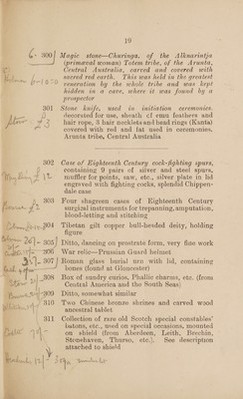 19
300 Magic stone—Churinga, of the Allnarintja
(primaeval woman) Totem tribe, of the Arunta,
Central Australia, carved and covered with
sacred red earth. This was held in the greatest
veneration by the whole tribe and was kept
hidden in a cave, where it was found by a
prospector
301 Stone knife, used in initiation ceremonies.
decorated for use, sheath of emu feathers and
hair rope, 3 hair necklets and head rings (Kanta)
covered with red and fat used in ceremonies,
Arunta tribe, Central Australia
£3
302 Case of Eighteenth Century cock-fighting spurs,
containing 9 pairs of silver and steel spurs,
muffler for points, saw, etc., silver plate in lid
engraved with fighting cocks, splendid Chippen-
dale case
£12
303 Four shagreen cases of Eighteenth Century
surgical instruments for trepanning, amputation,
blood-letting and stitching
£2
304 Tibetan gilt copper bull-headed deity, holding
figure
305 Ditto, dancing on prostrate form, very fine work
306 War relic—Prussian Guard helmet
307 Roman glass burial urn with lid, containing
bones (found at Gloucester)
308 Box of sundry curios, Phallic charms, etc. (from
Central America and the South Seas)
309 Ditto, somewhat similar
310 Two Chinese bronze shrines and carved wood
ancestral tablet
311 Collection of rare old Scotch special constables'
batons, etc., used on special occasions, mounted
on shield (from Aberdeen, Leith, Brechin,
Stonehaven, Thurso, etc.). See description
attached to shield